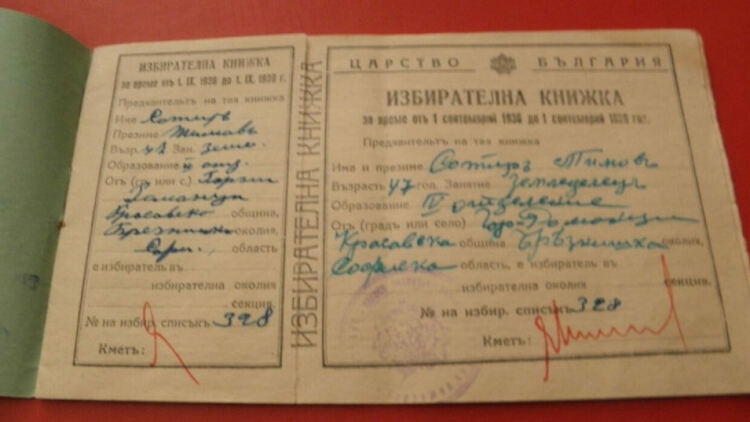 ИЗБИРАТЕЛНА КНИЖКА
за време отъ 1. IX. 1936 до 1. IX. 1939 г.
Предявительтъ на тая книжка
Име Сотиръ
Презиме Тимовъ
Възр. 47 Зан. земл.
Образование II отд.
Отъ (гр. или с.) Горни
Романци
Красавско община,
Брезнишка околия,
Соф. област
е избиратель въ
избирателна околия
секция.
№ на избир. списъкъ 328
Кметъ:
ИЗБИРАТЕЛНА КНИЖКА
ЦАРСТВО БЪЛГАРИЯ
ИЗБИРАТЕЛНА КНИЖКА
за време отъ 1 септемврий 1936 до 1 септемврий 1939 год.
Предявительтъ на тая книжка
Име и презиме Сотиръ Тимовъ
Възрасть 47 год. Занятие Земледелецъ
Образование II отделение
Отъ (градъ или село) Романци
Красавска община Брезнишка околия,
Софийска область, е избиратель въ
избирателна околия
секция.
№ на избир. списъкъ 328
Кметъ: